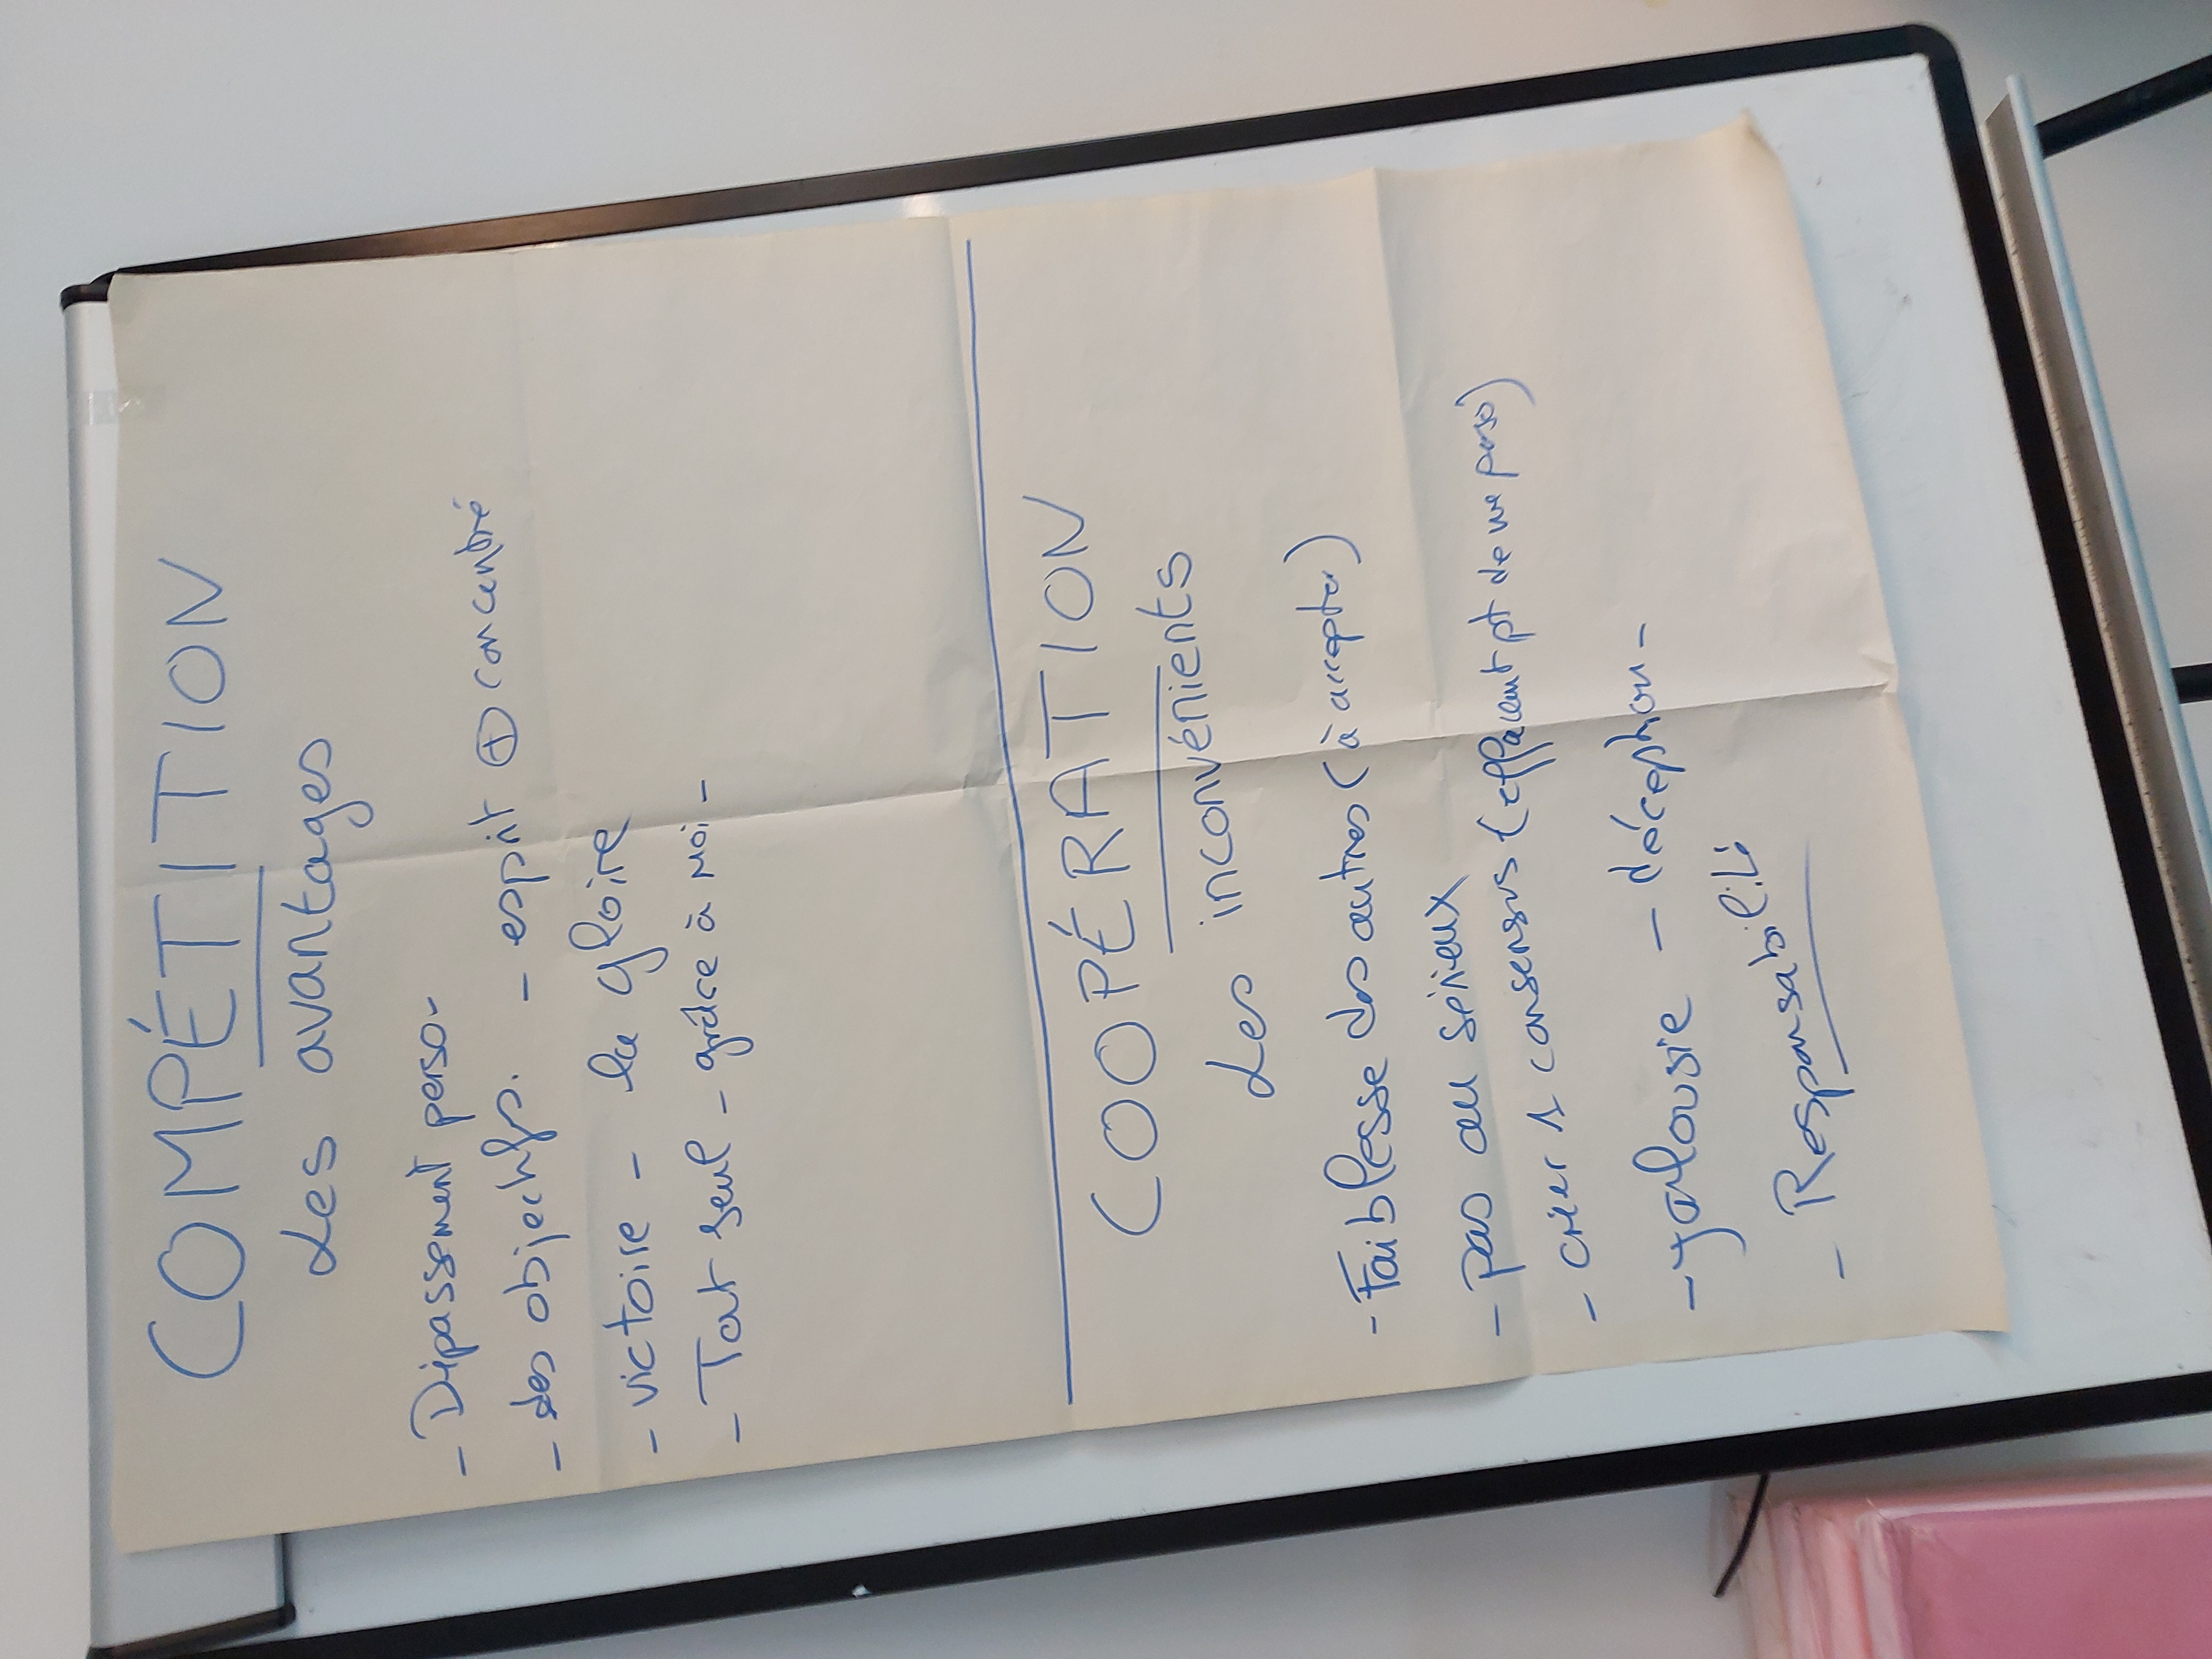 COMPÉTITION
Les avantages
- Dépassement perso-
- des objectifs. - esprit ⊕ concentré
- victoire - la gloire
- Tout seul - grâce à moi -
COOPÉRATION
Les inconvénients
- Faiblesse des autres (à accepter)
- pas au sérieux
- créer 1 consensus (effacent pt de vue perso)
- jalousie - déception -
- Responsabili